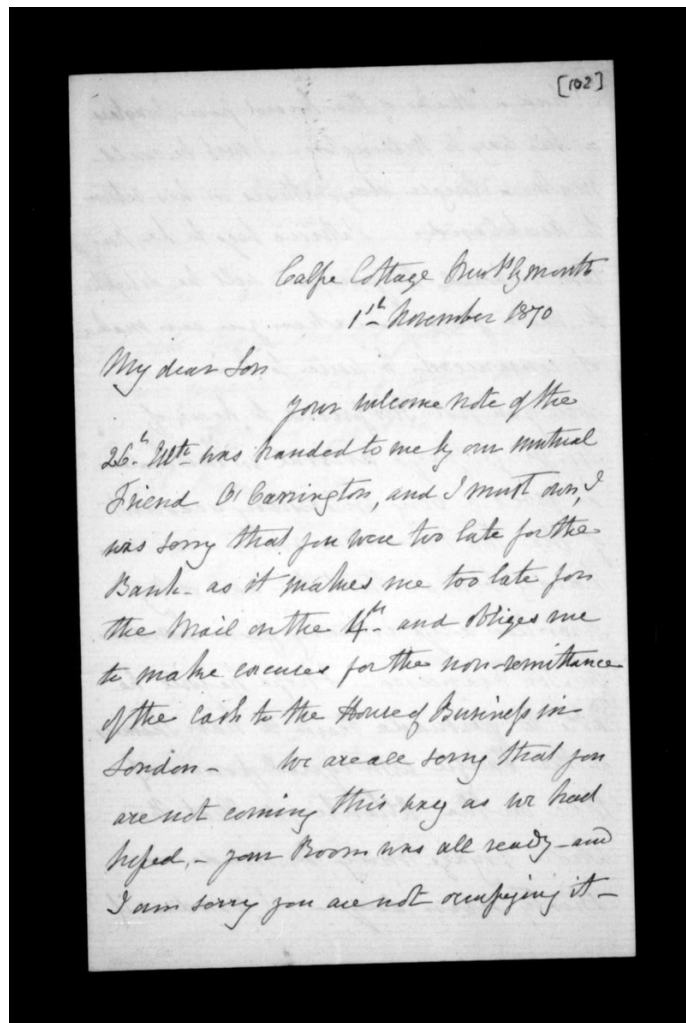 [102]
Calpe Cottage New Plymouth
1st November 1870
My dear Son
your welcome note of the
26th Ulto was handed to me by our mutual
Friend O'Carrington, and I must own, I
was sorry that you were too late for the
Bank - as it makes me too late for
the Mail on the 4th and obliges me
to make excuses for the non-remittance
of the cash to the House of Business in
London - We are all sorry that you
are not coming this way as we had
hoped, - your Room was all ready - and
I am sorry you are not occupying it -